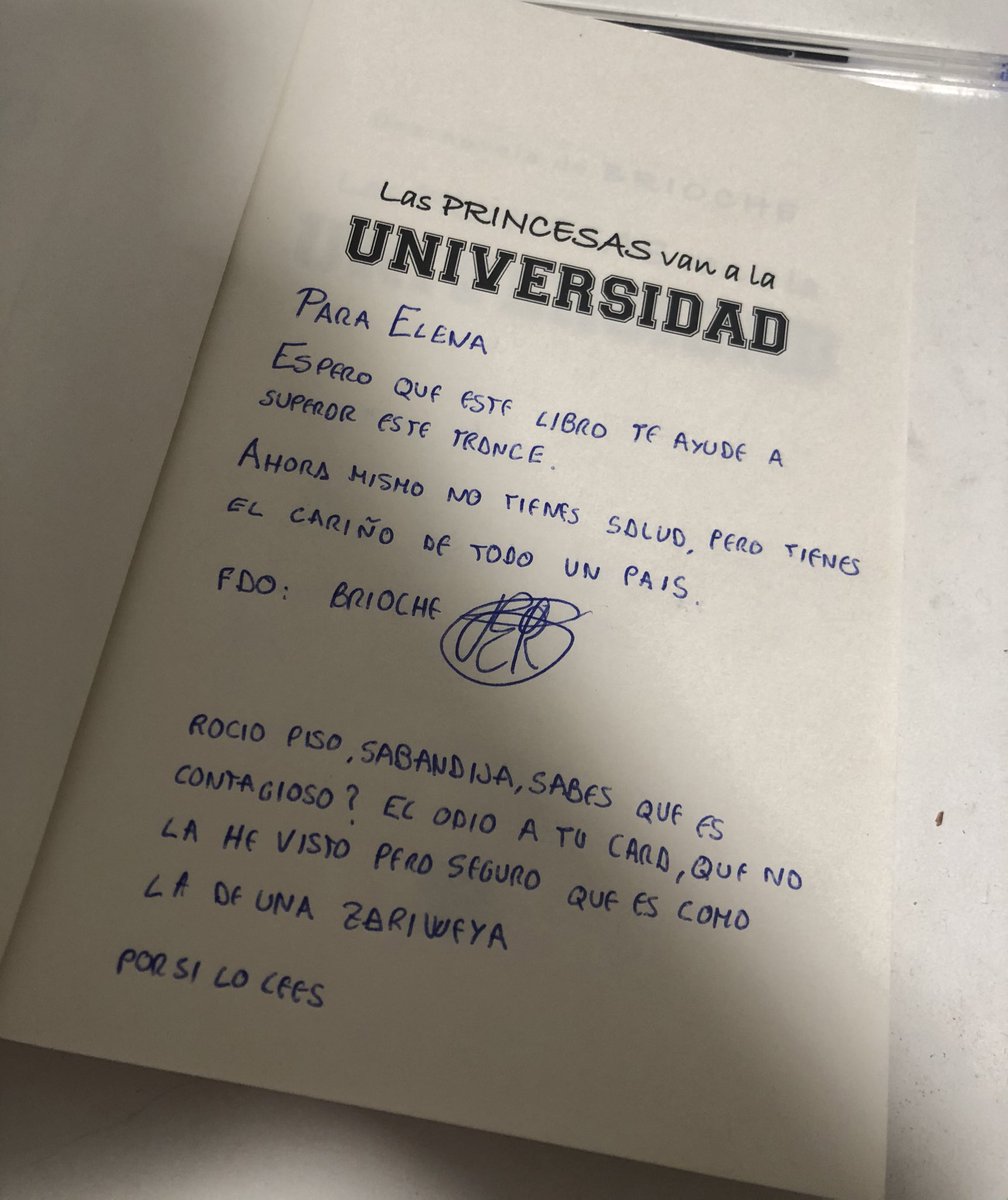 Las PRINCESAS van a la
UNIVERSIDAD
PARA ELENA
ESPERO QUE ESTE LIBRO TE AYUDE A
SUPEROR ESTE TRANCE.
AHORA MISMO NO TIENES SALUD, PERO TIENES
EL CARIÑO DE TODO UN PAIS.
FDO: BRIOCHE
ROCIO PISO, SABANDIJA, SABES QUE ES
CONTAGIOSO? EL ODIO A TU CARA, QUE NO
LA HE VISTO PERO SEGURO QUE ES COMO
LA DE UNA ZARIWEYA
POR SI LO LEES